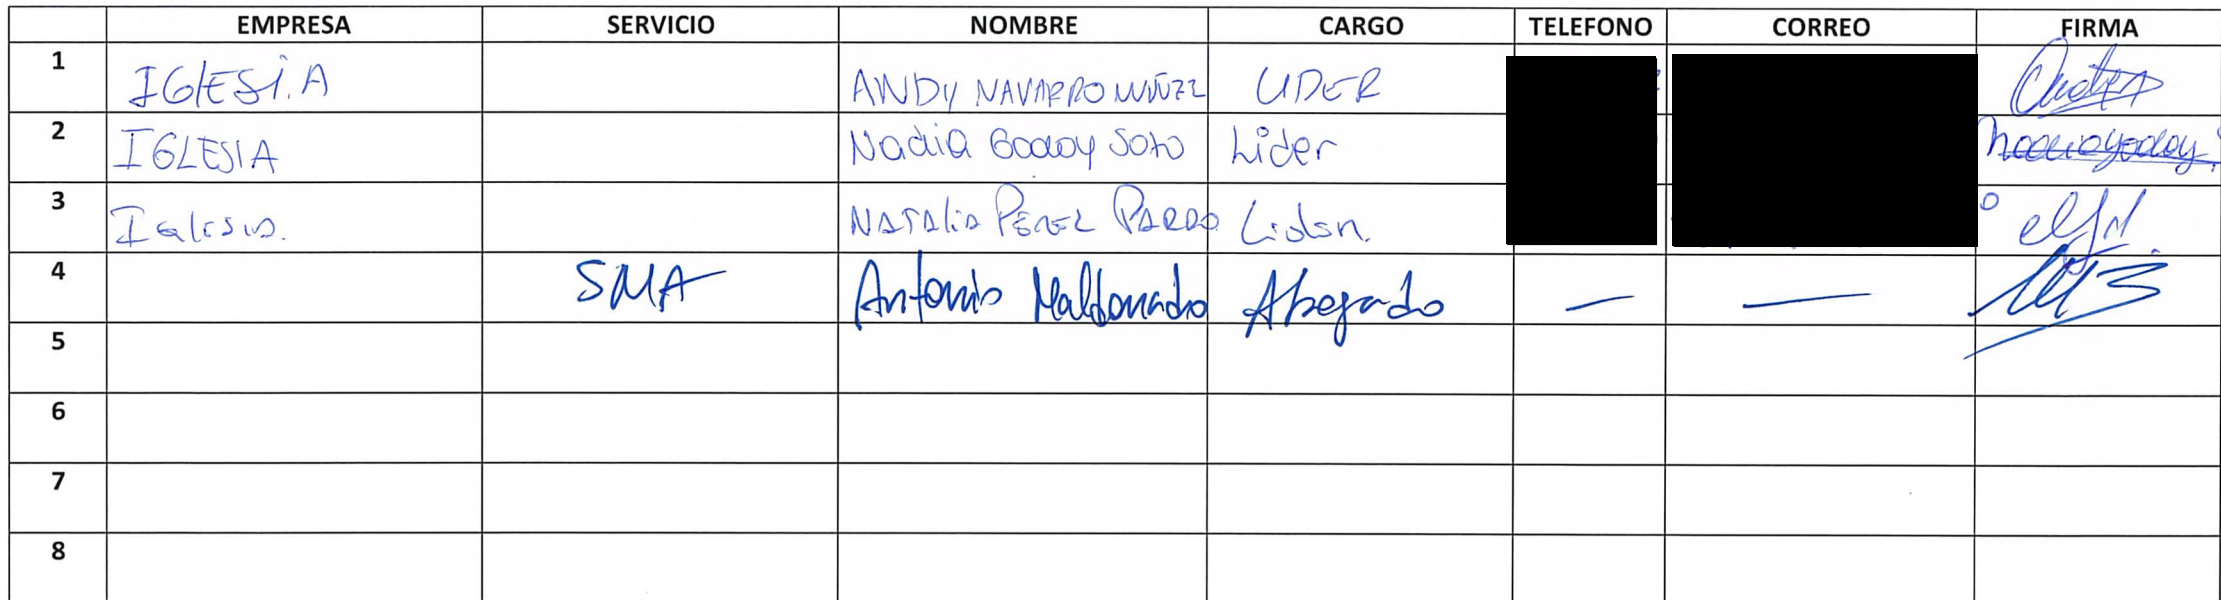 EMPRESA SERVICIO NOMBRE CARGO TELEFONO CORREO FIRMA
1 IGLESIA ANDY NAVARRO LIDER
2 IGLESIA Nadia Godoy Soto Lider
3 Iglesia. NATALIA PEREZ PARDO Lider.
4 SMA Antonio Maldonado Abogado — —
5
6
7
8